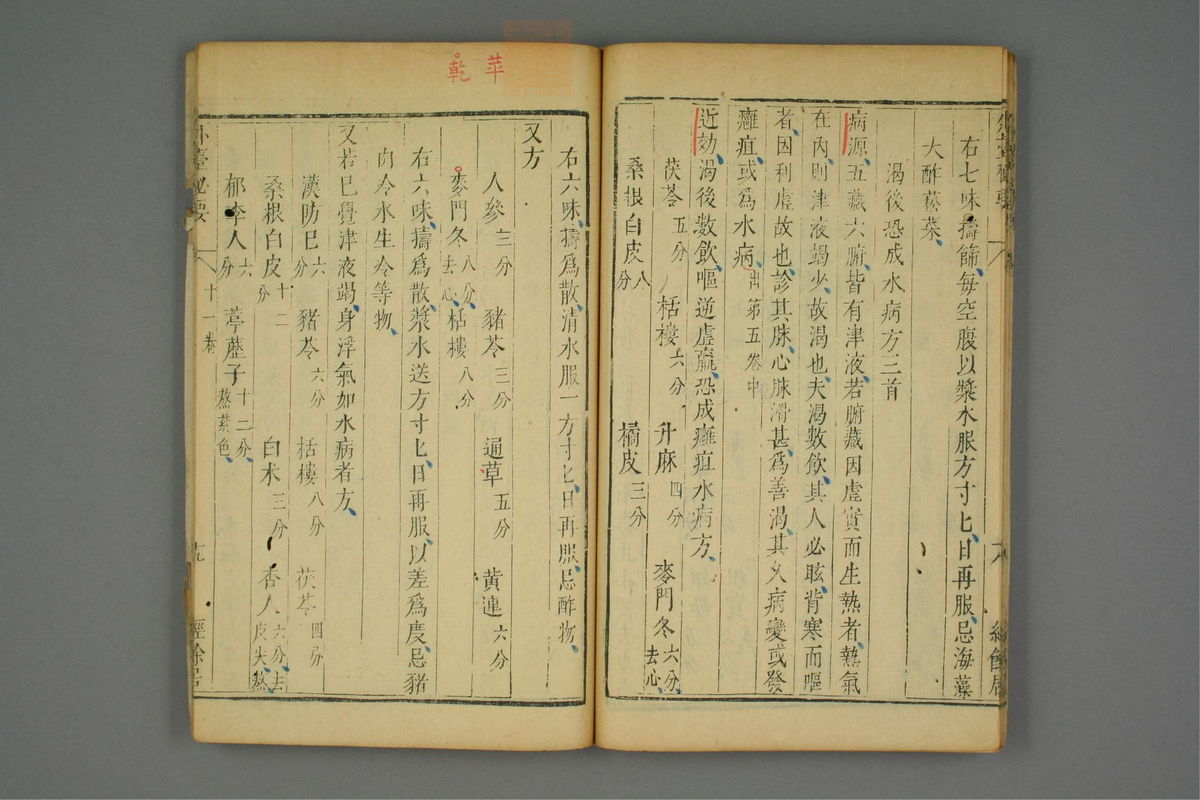 右七味擣篩每空腹以漿水服方寸匕日再服忌海藻
大酢菘菜
渴後恐成水病方三首
病源五藏六腑皆有津液若腑藏因虛實而生熱者熱氣
在內則津液竭少故渴也夫渴數飲其人必眩背寒而嘔
者因利虛故也診其脉心脉滑甚爲善渴其久病變或發
癰疽或爲水病出第五卷中
近効渴後數飲嘔逆虛羸恐成癰疽水病方
茯苓五分 栝樓六分 升麻四分 麥門冬六分去心
桑根白皮八分 橘皮三分
乾 苹
右六味擣爲散清水服一方寸匕日再服忌酢物
又方
人參三分 豬苓三分 通草五分 黄連六分
麥門冬八分去心 栝樓八分
右六味擣爲散漿水送方寸匕日再服以差爲慶忌豬
肉冷水生冷等物
又若已覺津液竭身浮氣如水病者方
漢防巳六分 豬苓六分 栝樓八分 茯苓四分
桑根白皮十二分 白术三分 杏人六分去皮尖熬
郁李人六分 葶藶子十二分熬紫色
外臺秘要 十一卷 十九 經餘居